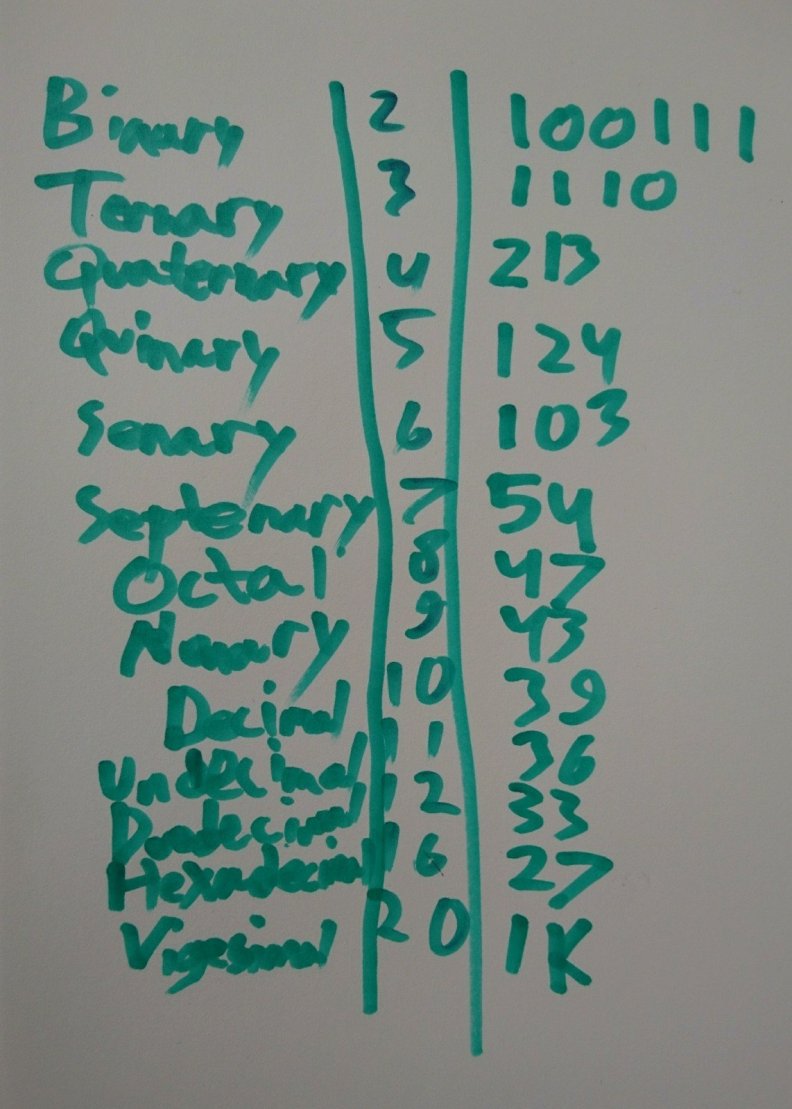 Binary 2 100111
Ternary 3 1110
Quaternary 4 213
Quinary 5 124
Senary 6 103
Septenary 7 54
Octal 8 47
Nonary 9 43
Decimal 10 39
Undecimal 11 36
Duodecimal 12 33
Hexadecimal 16 27
Vigesimal 20 1K